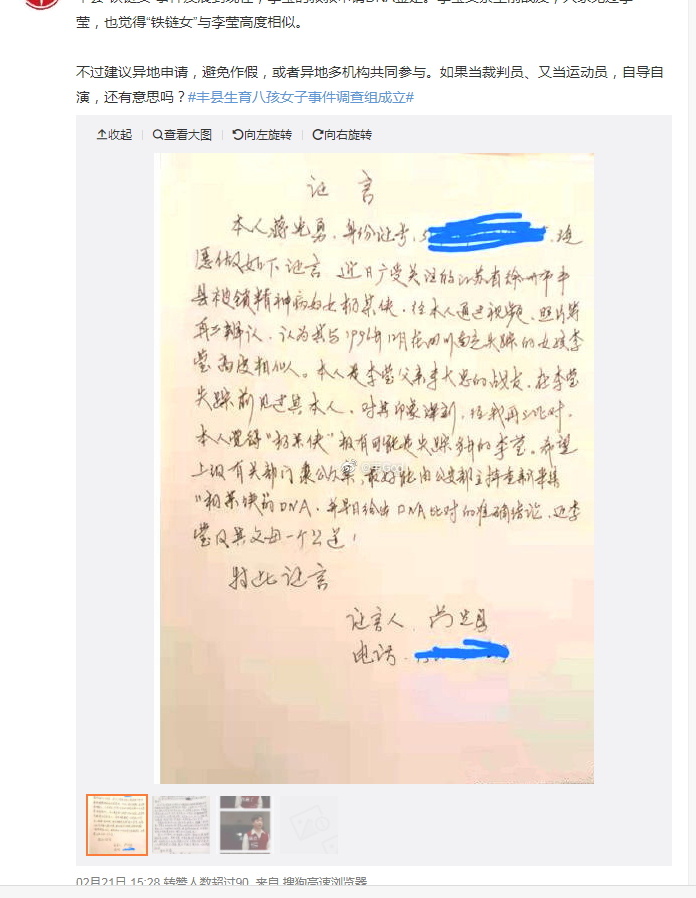 丰县"铁链女"事件发展到现在，李莹的叔叔申请DNA鉴定。李莹父亲生前战友，见过李
莹，也觉得"铁链女"与李莹高度相似。
不过建议异地申请，避免作假，或者异地多机构共同参与。如果当裁判员、又当运动员，自导自
演，还有意思吗？#丰县生育八孩女子事件调查组成立#
收起 查看大图 向左旋转 向右旋转
证 言
本人蒋 勇，身份证号， ，现
愿做如下证言 近日广受关注的江苏省徐州市丰
县被锁精神病妇女杨某侠，经本人通过视频、照片等
再三辨认，认为其与1996年12月在四川南充失踪的女孩李
莹高度相似人。本人是李莹父亲李大忠的战友，在李莹
失踪前见过其本人，对其印象深刻，经我再三比对，
本人觉得"杨某侠"极有可能是失踪多年的李莹。希望
上级有关部门秉公办案，最好能由公安部主持重新采集
"杨某侠的DNA，并早日给出DNA比对的准确结论，还李
莹及其父母一个公道！
特此证言
证言人．
电话．
02月21日 15:28 转赞人数超过90 来自 搜狗高速浏览器